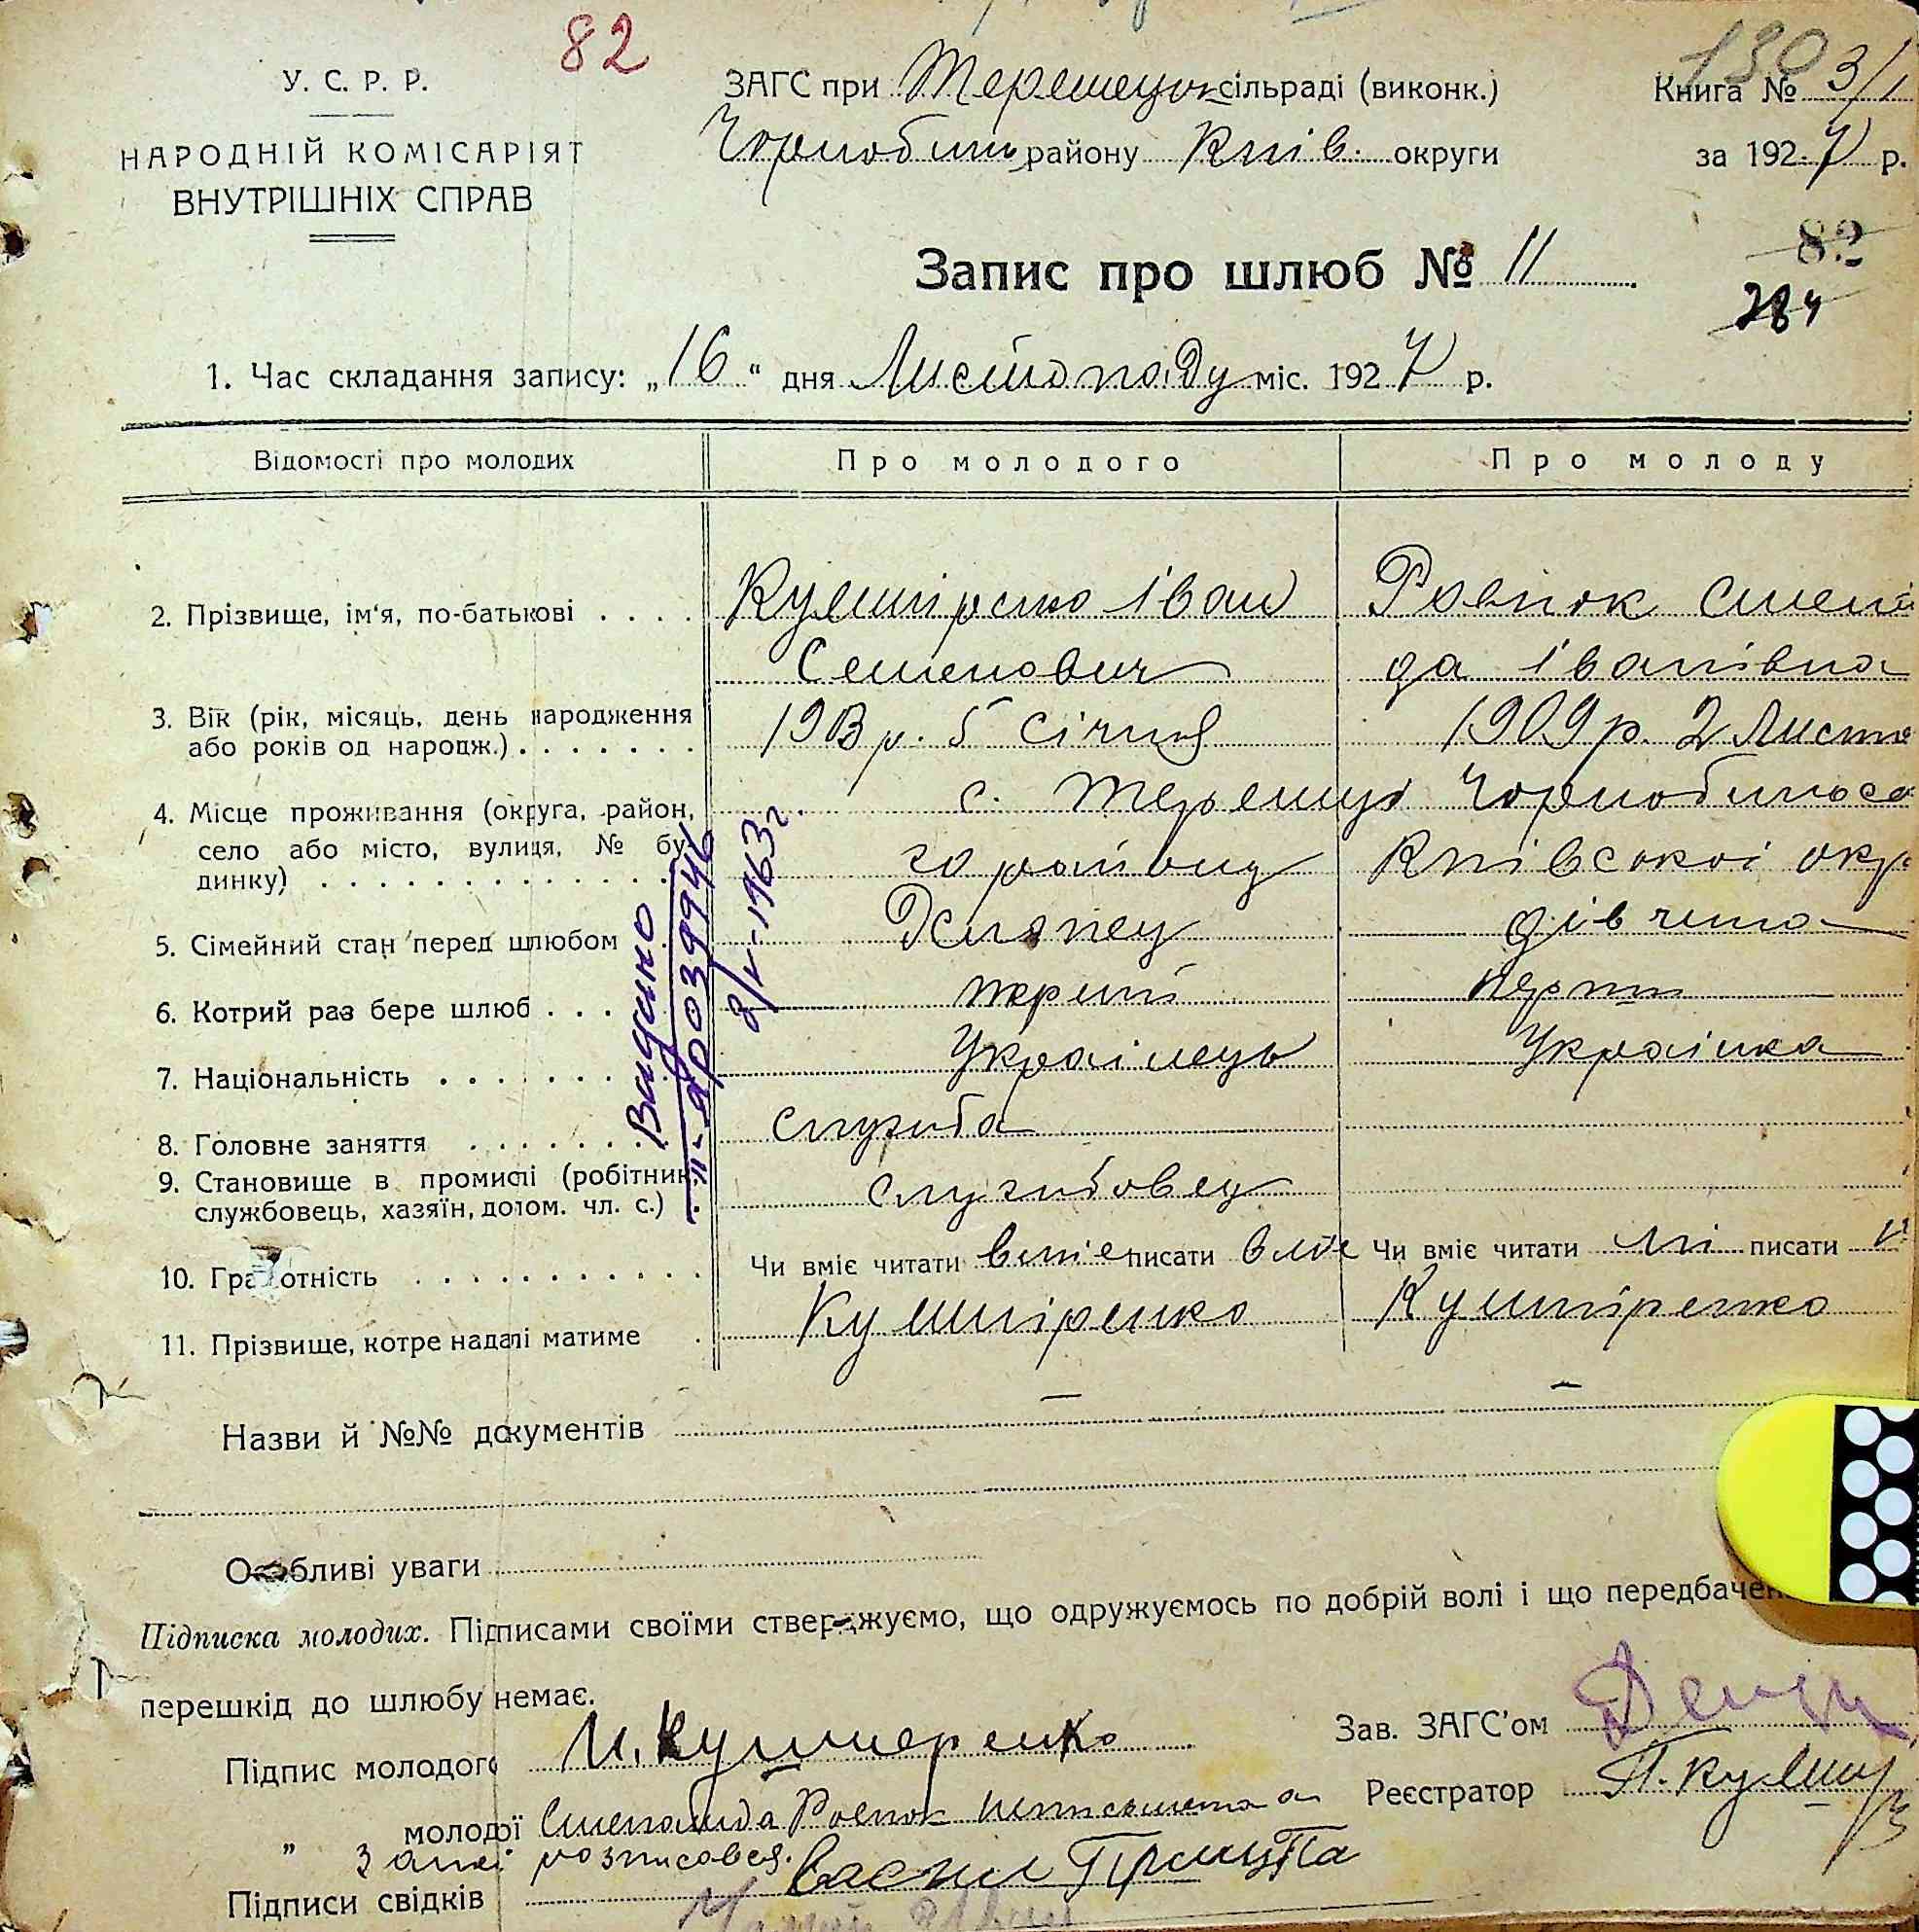 82
130
У. С. Р. Р.
НАРОДНІЙ КОМІСАРІЯТ
ВНУТРІШНІХ СПРАВ
ЗАГС при Терешецьк сільраді (виконк.)
Чорнобильс району Київ. округи
Книга № 3/1
за 1927 р.
Запис про шлюб № 11
82
284
1. Час складання запису: „16“ дня Листопаду міс. 1927 р.
Відомості про молодих Про молодого Про молоду
2. Прізвище, ім‘я, по-батькові . . . . Кушніренко Іван
Семенович
да Іванівна
3. Вік (рік, місяць, день народження
або років од народж.) . . . . . . . 1903 р. 5 Січня 1909 р. 2 Листо
4. Місце проживання (округа, район,
село або місто, вулиця, № бу-
динку) . . . . . . . . . . . . .
с. Терешці Чорнобильсо
го району Київської окр
5. Сімейний стан перед шлюбом дівчина
6. Котрий раз бере шлюб . . .
7. Національність . . . . . . . Українець Українка
8. Головне заняття . . . . . . . служба
9. Становище в промислі (робітник,
службовець, хазяїн, допом. чл. с.) . службовец
10. Грамотність . . . . . . . . . . . . Чи вміє читати вміє писати вміє Чи вміє читати ні писати н
11. Прізвище, котре надалі матиме . Кушніренко Кушніренко
Видано
II-ЯР 0399946
8/V-1963 г.
Назви й №№ документів
Особливі уваги
Підписка молодих. Підписами своїми стверджуємо, що одружуємось по добрій волі і що передбачен
перешкід до шлюбу немає.
Зав. ЗАГС’ом
Підпис молодого И. Кушнеренко
Реєстратор П. Кушнір
„ молодої Степанида неписьменна а
з а неї розписався.
Підписи свідків Васил